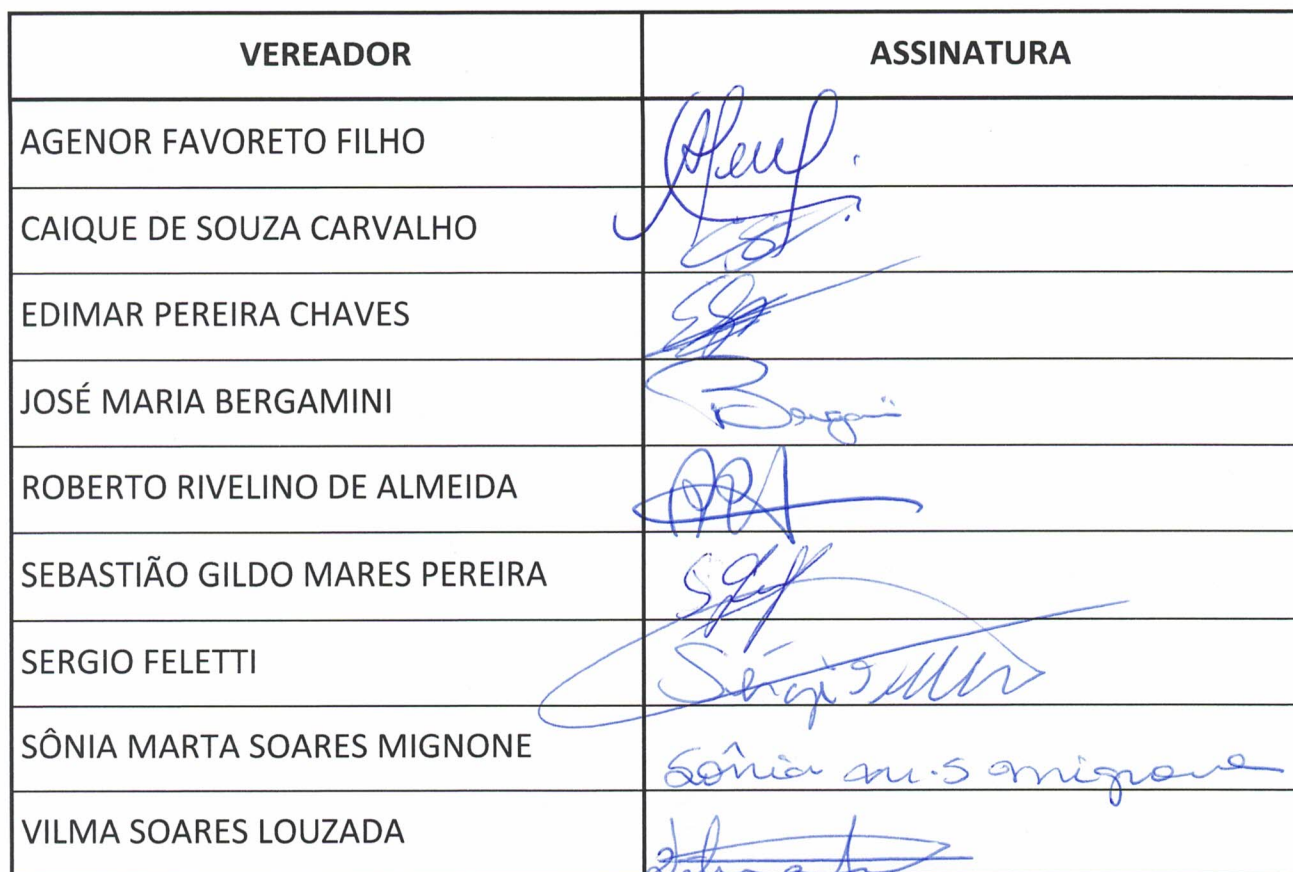 VEREADOR ASSINATURA
AGENOR FAVORETO FILHO
CAIQUE DE SOUZA CARVALHO
EDIMAR PEREIRA CHAVES
JOSÉ MARIA BERGAMINI
ROBERTO RIVELINO DE ALMEIDA
SEBASTIÃO GILDO MARES PEREIRA
SERGIO FELETTI Sérgio
SÔNIA MARTA SOARES MIGNONE Sônia M.S Mignone
VILMA SOARES LOUZADA